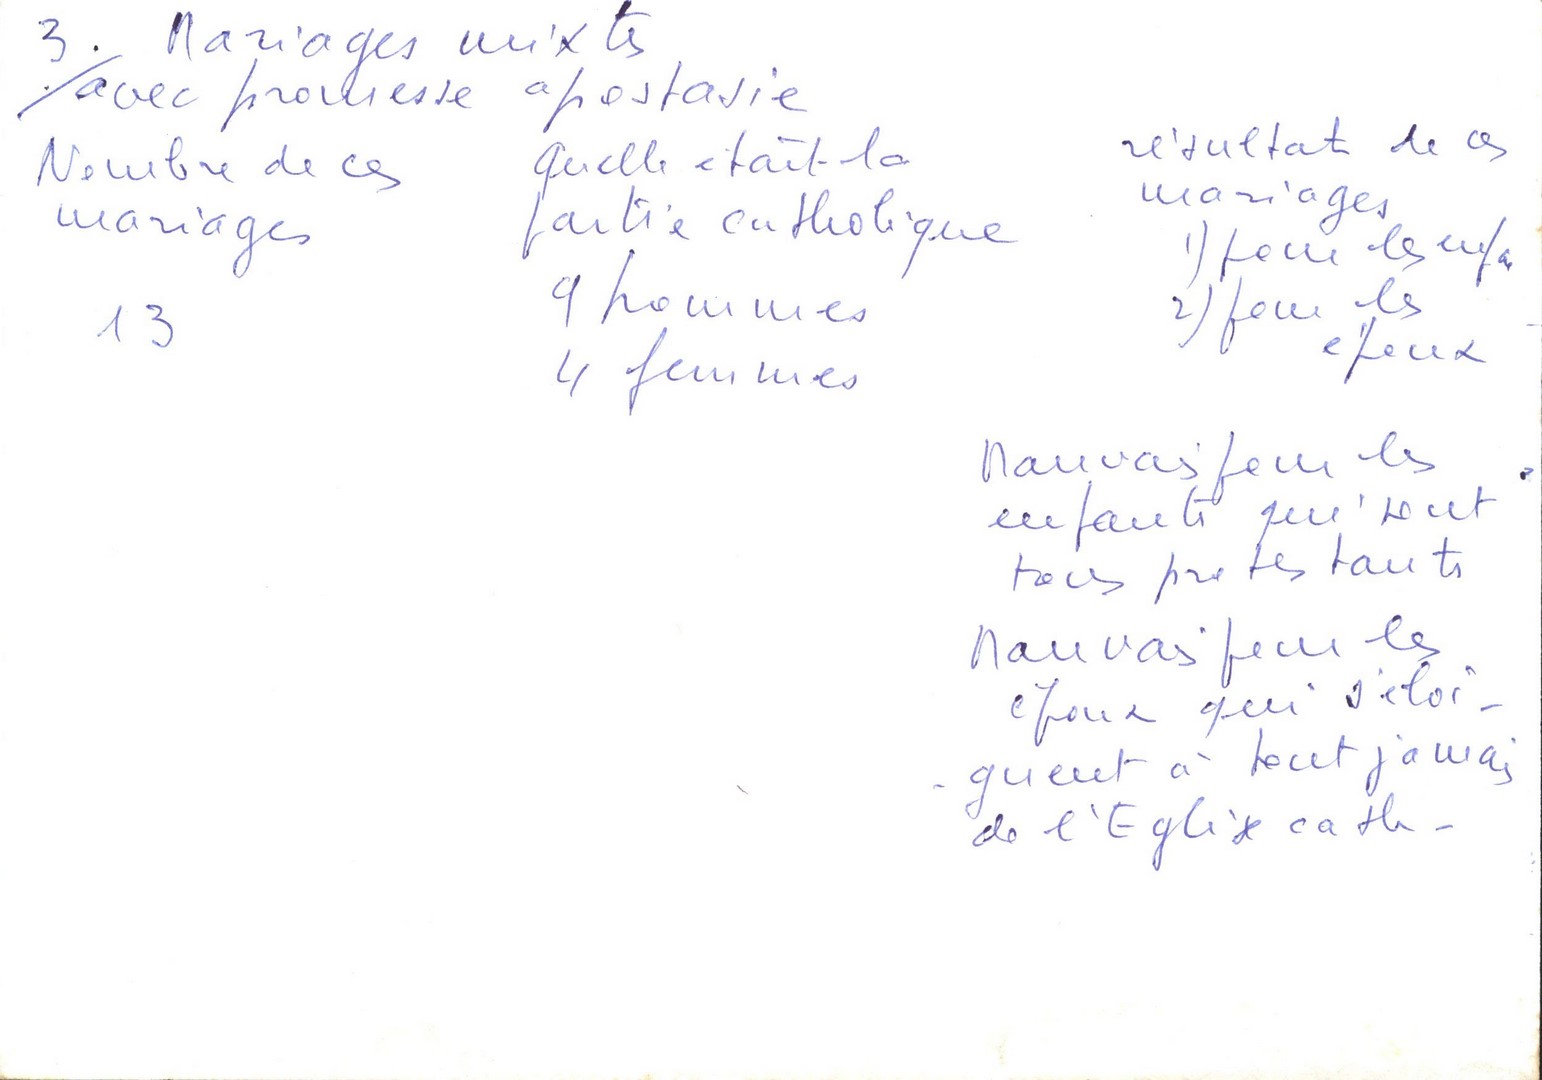 3. Mariages mixtes
avec promesse apostasie
Nombre de ces
mariages
13
quelle était la
partie catholique
9 hommes
4 femmes
résultat de ces
mariages
1) pour les enfa
2) pour les
époux
Mauvais pour les
enfants qui sont
tous protestants
Mauvais pour les
époux qui s'éloi-
gnent à tout jamais
de l'Eglise cath-